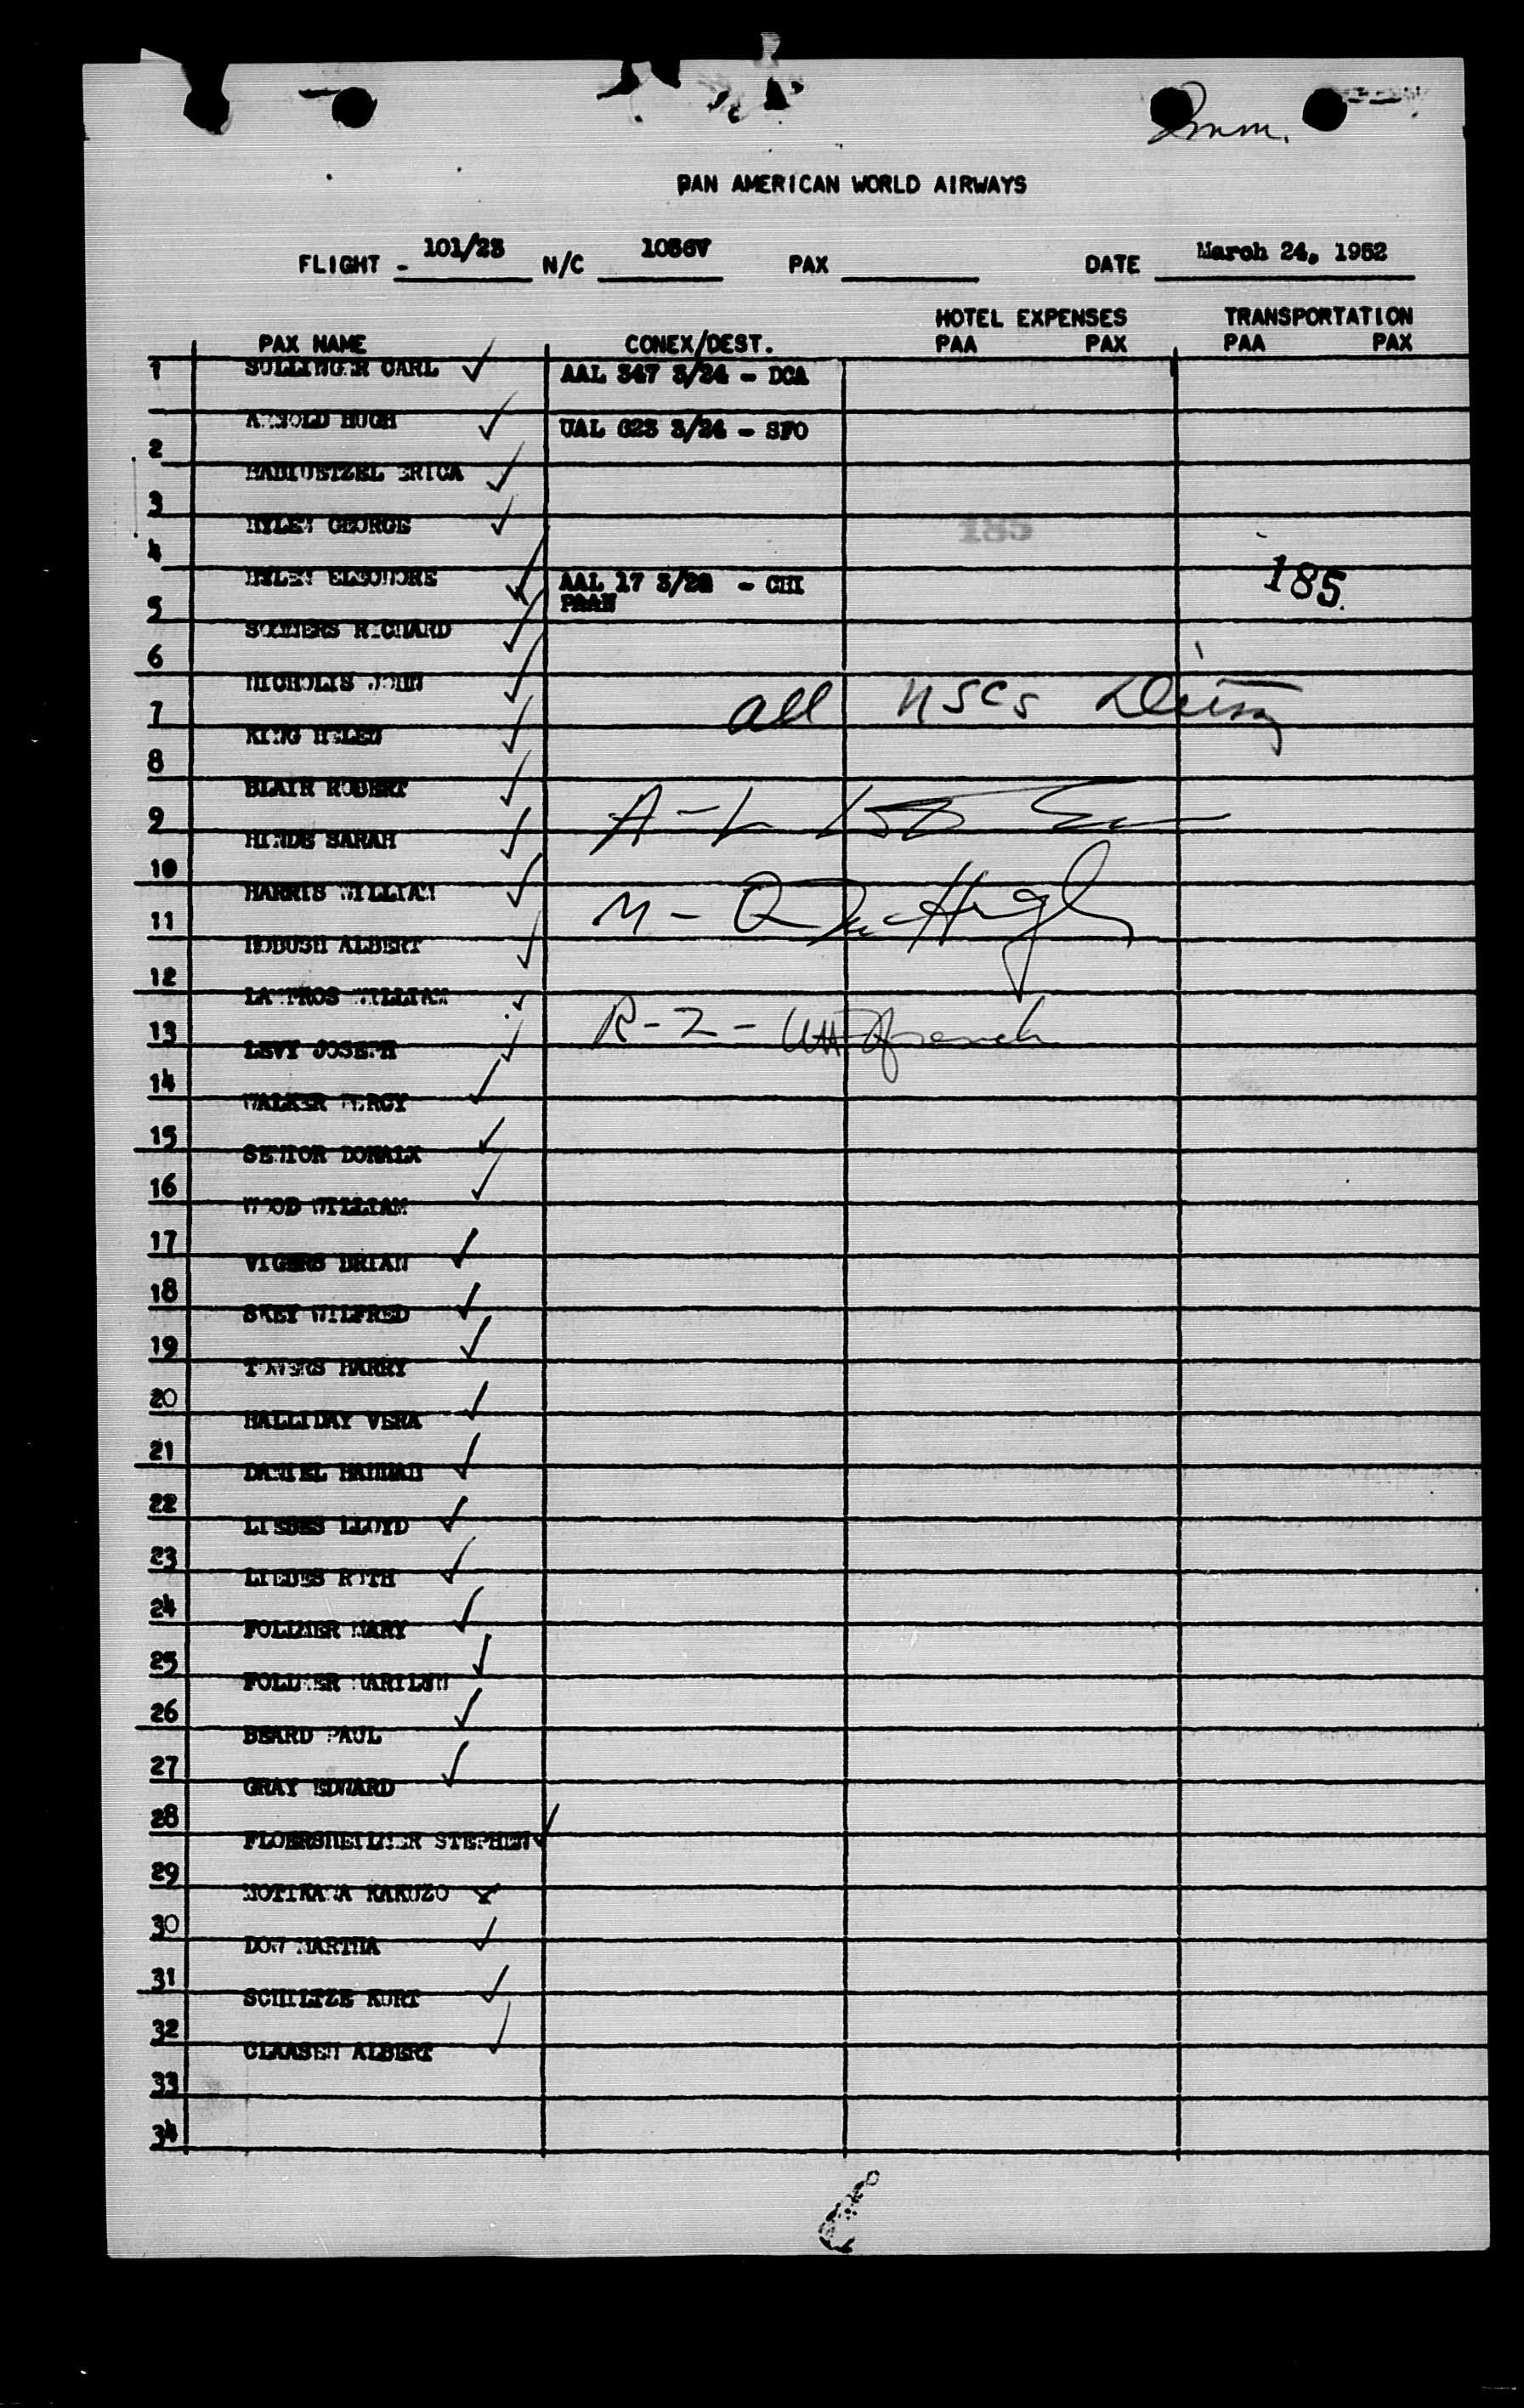 PAN AMERICAN WORLD AIRWAYS
FLIGHT - 101/23 N/C PAX DATE March 24, 1952
HOTEL EXPENSES TRANSPORTATION
PAX NAME CONEX/DEST. PAA PAX PAA PAX
1 CARL AAL 347 3/24 - DCA
ARNOLD HUGH UAL 623 3/24 - SFO
2
ERICA
3
HYLEN GEORGE 185
4
HYLEN ELEONORE AAL 17 3/24 - CHI 185
PAAN
5
SOMMERS RICHARD
6
NICHOLLS JOHN
all NSCs
7
KING HELEN
8
BLAIR ROBERT
9 A-L
HINDS SARAH
10
HARRIS WILLIAM M -
11
ALBERT
12
WILLIAM
13 R-2-
LEVY JOSEPH
14
WALKER PERCY
15
SENIOR DONALX
16
WOOD WILLIAM
17
VIGERS BRIAN
18
SKEY WILFRED
19
TOWERS HARRY
20
HALLIDAY VERA
21
DANIEL HANNAH
22
LLOYD
23
RUTH
24
FOLLMER MARY
25
FOLLMER MARILYN
26
BEARD PAUL
27
GRAY EDWARD
28
FLOERSHEIMER STEPHEN
29
KAKUZO
30
DOW MARTHA
31
KURT
32
CLAASEN ALBERT
33
34